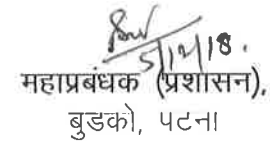 5/4/18.
महाप्रबंधक (प्रशासन),
बुडको, पटना